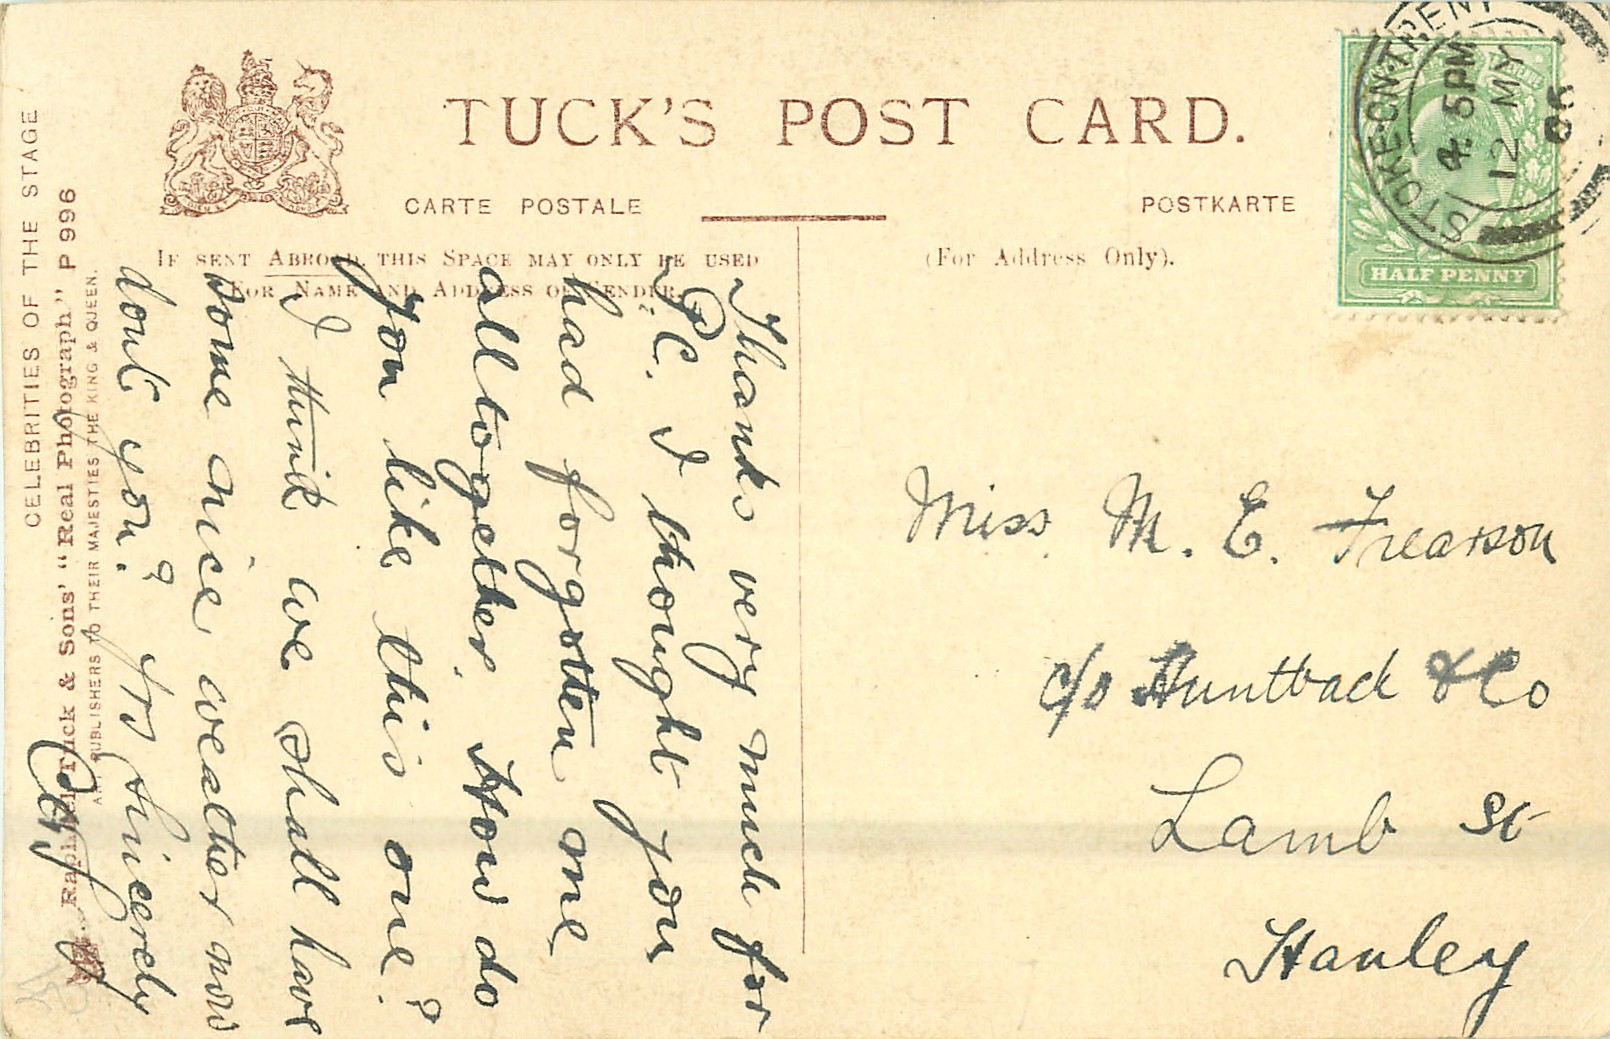 TUCK'S POST CARD.
CARTE POSTALE
POSTKARTE
IF SENT ABROAD, THIS SPACE MAY ONLY BE USED
FOR NAME AND ADDRESS OF SENDER.
(For Address Only).
CELEBRITIES OF THE STAGE
Raphael Tuck & Sons' "Real Photograph" P 996
ART PUBLISHERS TO THEIR MAJESTIES THE KING & QUEEN.
STOKE-ON-TRENT
4. 5PM
12 MY
06
REVENUE
HALF PENNY
Thanks very much for
P.C. I thought you
had forgotten me
alltogether. How do
you like this one?
I think we shall have
some nice weather now
dont you? Yrs Sincerely
Miss M. E. Frearson
c/o Huntbach & Co
Lamb St
Hanley